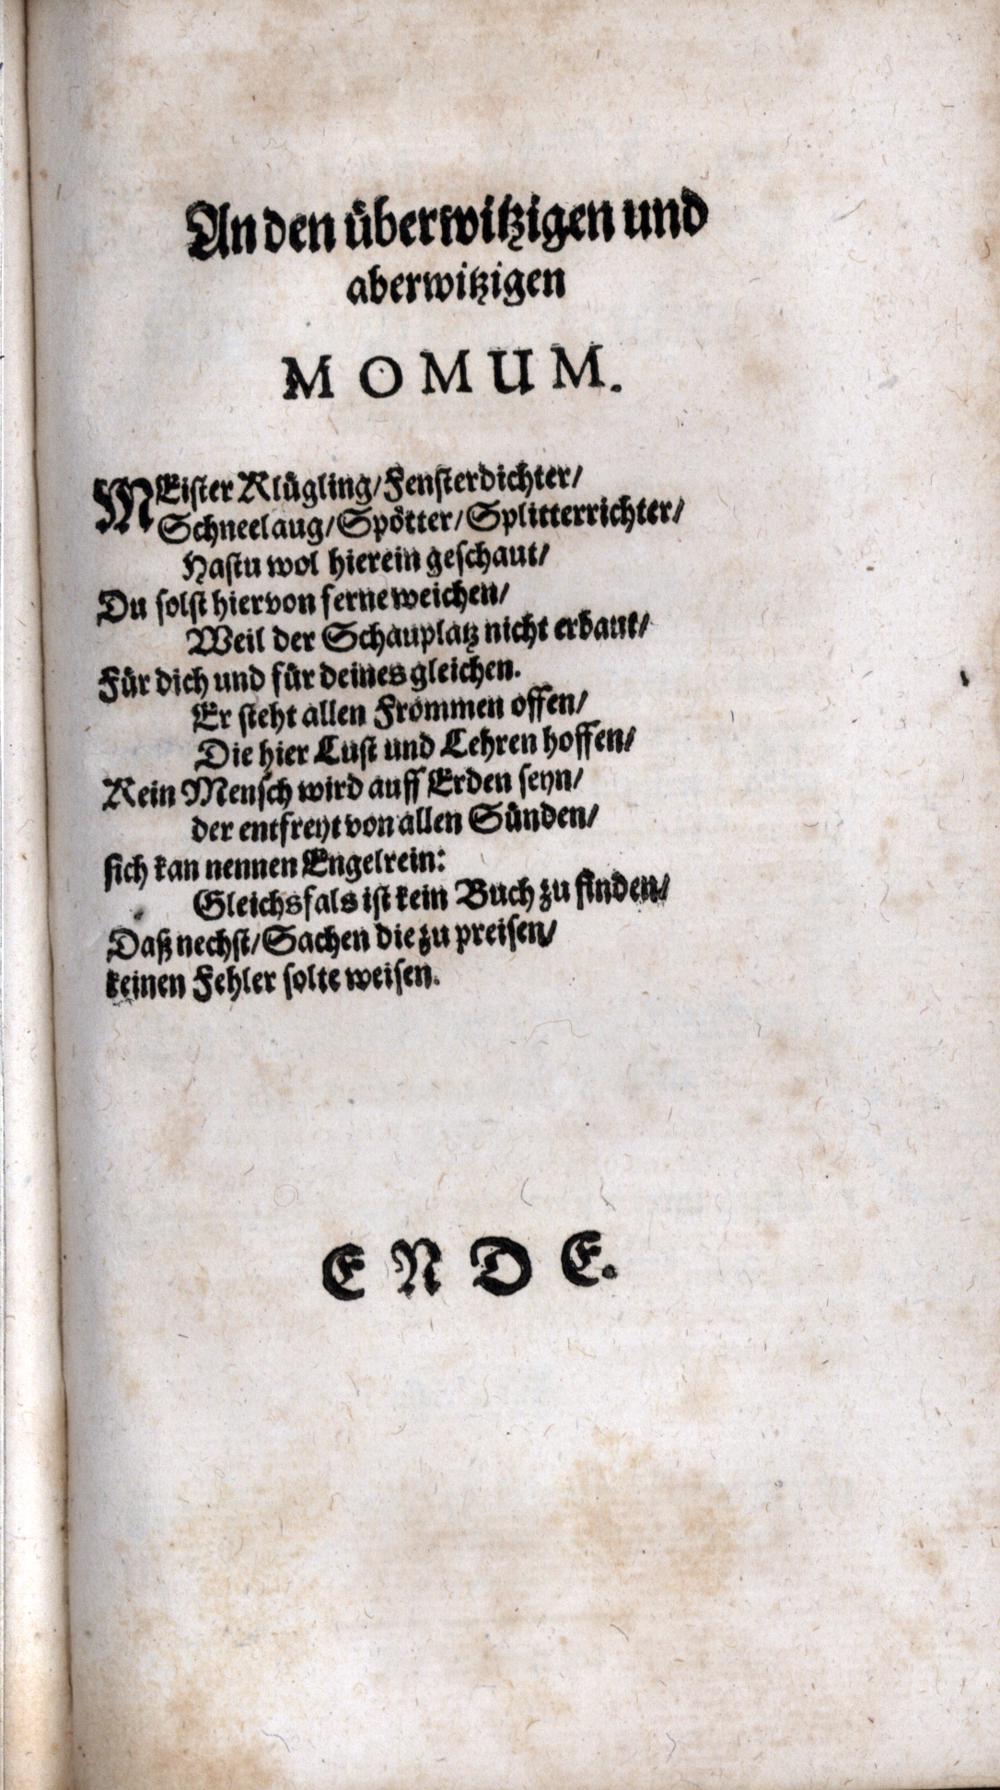 An den überwitzigen und
aberwitzigen
MOMUM.
MEister Klügling/Fensterdichter/
Schneelaug/Spötter/Splitterrichter/
Hastu wol hierein geschaut/
Du solst hiervon ferne weichen/
Weil der Schauplatz nicht erbaut/
Für dich und für deines gleichen.
Er steht allen Frommen offen/
Die hier Lust und Lehren hoffen/
Kein Mensch wird auff Erden seyn/
der entfreyt von allen Sünden/
sich kan nennen Engelrein:
Gleichsfals ist kein Buch zu finden/
Daß nechst/Sachen die zu preisen/
keinen Fehler solte weisen.
ENDE.